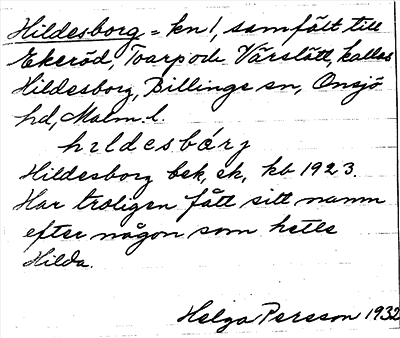 Hildesborg = kn!, samfält till
Ekeröd, Toarpode Vårslätt, kallas
Hildesborg, Billinge sn, Onsjö
hd, Malm. l.
hıldesbórj
Hildesborg bek, ek, kb 1923.
Har troligen fått sitt namn
efter någon som hette
Hilda.
Helga Persson 1932